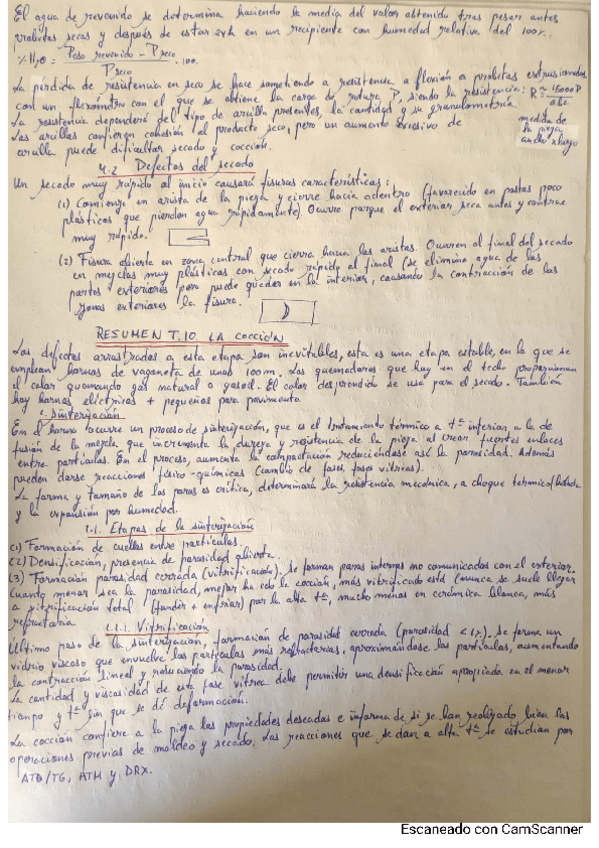 El agua de revenido se determina haciendo la media del valor obtenido tras pesar antes
probetas secas y después de estar 24h en un recipiente con humedad relativa del 100%.
% H₂O = Peso revenido - P seco / P seco · 100.
La pérdida de resistencia en seco se hace sometiendo a resistencia a flexión a probetas extrusionadas
con un flexómetro con el que se obtiene la carga de rotura P, siendo la resistencia: R =
La resistencia dependerá del tipo de arcilla presentes, la cantidad y su granulometría.
Las arcillas confieren cohesión al producto seco, pero un aumento excesivo de
arcilla puede dificultar secado y cocción.
medida de
la pieza
ancho x largo
4.2 Defectos del secado
Un secado muy rápido al inicio causará fisuras características:
(1) Comienza en arista de la pieza y cierre hacia adentro (favorecido en pastas poco
plásticas que pierden agua rápidamente). Ocurre porque el exterior seca antes y contrae
muy rápido.
(2) Fisura abierta en zona central que cierra hacia las aristas. Ocurren al final del secado
en mezclas muy plásticas con secado rápido al final (se elimina agua de las
partes exteriores pero puede quedar en la interior, causando la contracción de las
zonas exteriores la fisura.
RESUMEN T.10 LA COCCIÓN
Los defectos arrastrados a esta etapa son inevitables, esta es una etapa estable, en la que se
emplean hornos de vagoneta de unos 100m. Los quemadores que hay en el techo proporcionan
el calor quemando gas natural o gasoil. El calor desprendido se usa para el secado. También
hay hornos eléctricos + pequeños para pavimento.
1. Sinterización
En el horno ocurre un proceso de sinterización, que es el tratamiento térmico a tª inferior a la de
fusión de la mezcla que incrementa la dureza y resistencia de la pieza al crear fuertes enlaces
entre partículas. En el proceso, aumenta la compactación reduciéndose así la porosidad. Además
pueden darse reacciones físico-químicas (cambio de fases, fases vítreas).
La forma y tamaño de los poros es crítica, determinará la resistencia mecánica, a choque térmico/helada
y la expansión por humedad.
1.1. Etapas de la sinterización
(1) Formación de cuellos entre partículas.
(2) Densificación, presencia de porosidad abierta.
(3) Formación porosidad cerrada (vitrificación). Se forman poros internos no comunicados con el exterior.
Cuanto menor sea la porosidad, mejor ha ido la cocción, más vitrificado está (nunca se suele llegar
a vitrificación total (fundir + enfriar) por la alta tª, mucho menos en cerámica blanca, más
refractaria.
1.1.1. Vitrificación
Último paso de la sinterización, formación de porosidad cerrada (porosidad <1%). Se forma un
vidrio viscoso que envuelve las partículas más refractarias, aproximándose las partículas, aumentando
la contracción lineal y reduciendo la porosidad.
La cantidad y viscosidad de esta fase vítrea debe permitir una densificación apropiada en el menor
tiempo y tª sin que se dé deformación.
La cocción confiere a la pieza las propiedades deseadas e informa de si se han realizado bien las
operaciones previas de moldeo y secado. Las reacciones que se dan a alta tª se estudian por
ATD/TG, ATM y DRX.
Escaneado con CamScanner